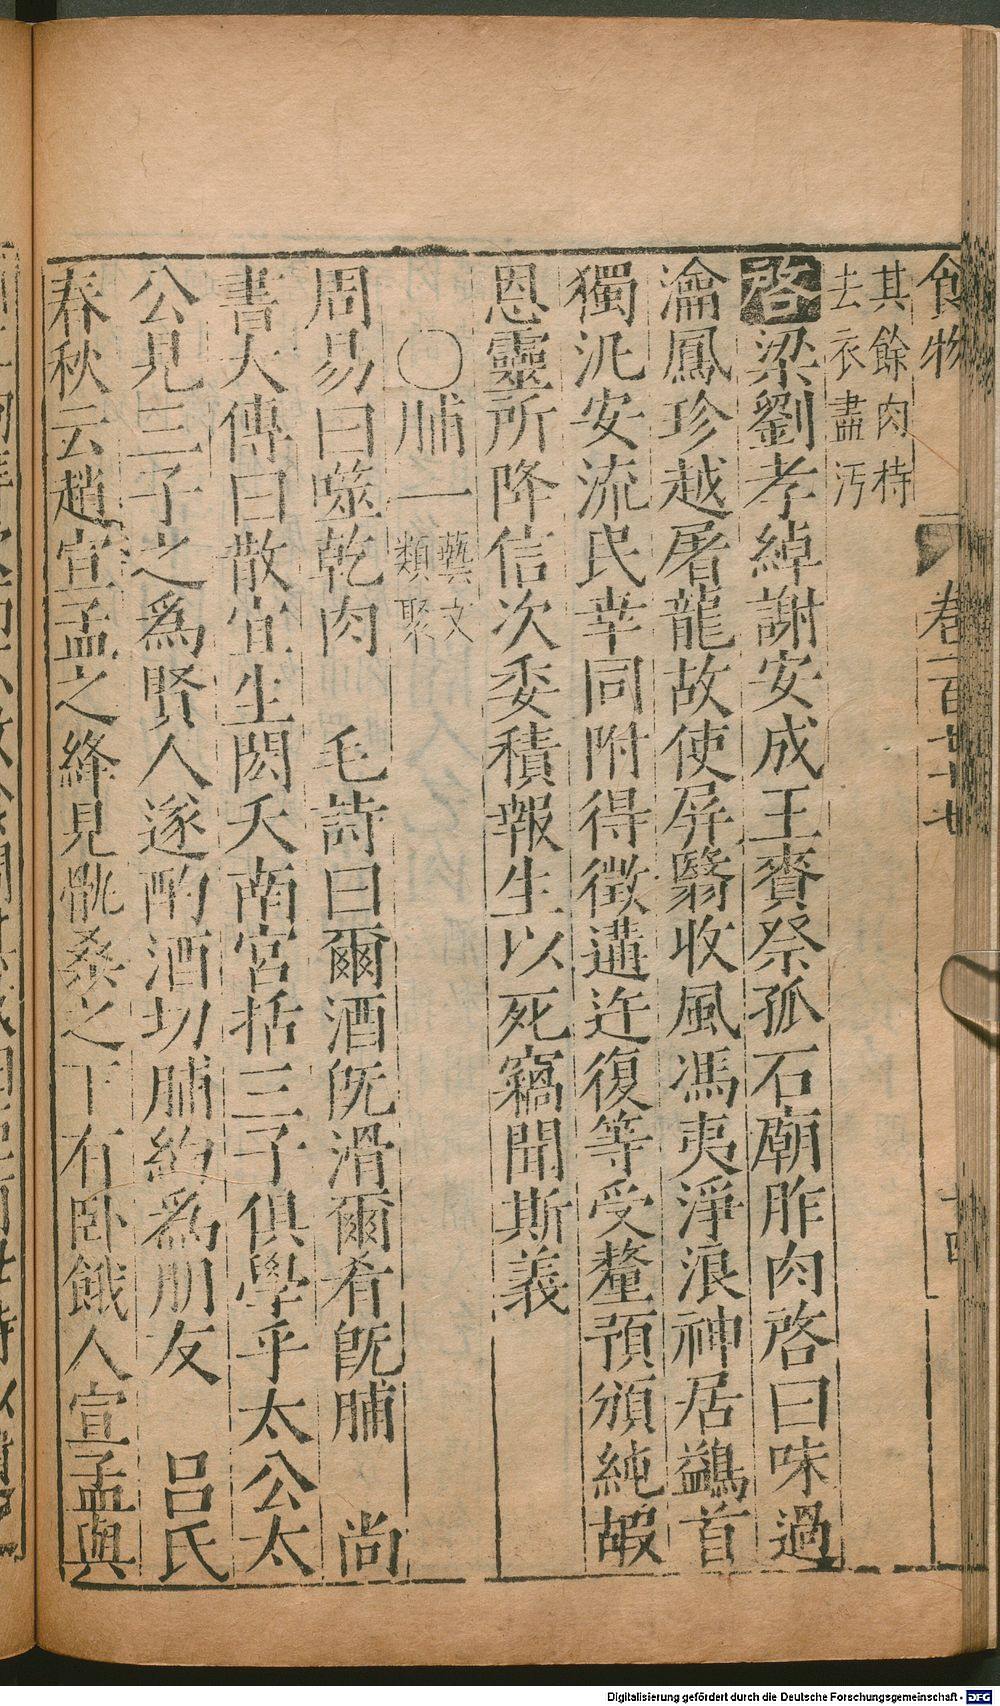 食物 卷一百廿七 十四
其餘肉持
去衣盡汚
啓梁劉孝綽謝安成王賚祭孤石廟胙肉啓曰味過
瀹鳳珍越屠龍故使屏翳收風馮夷淨浪神居鷁首
獨汎安流民幸同附得徵遘迕復等受釐預頒純嘏
恩靈所降信次委積報生以死竊聞斯義
〇脯一藝文類聚
周易曰噬乾肉 毛詩曰爾酒旣滑爾肴旣脯 尚
書大傳曰散宜生閎夭南宮括三子俱學乎太公太
公見三子之爲賢人遂酌酒切脯約爲朋友 呂氏
春秋云趙宣孟之絳見骫桑之下有卧餓人宣孟與
Digitalisierung gefördert durch die Deutsche Forschungsgemeinschaft - DFG